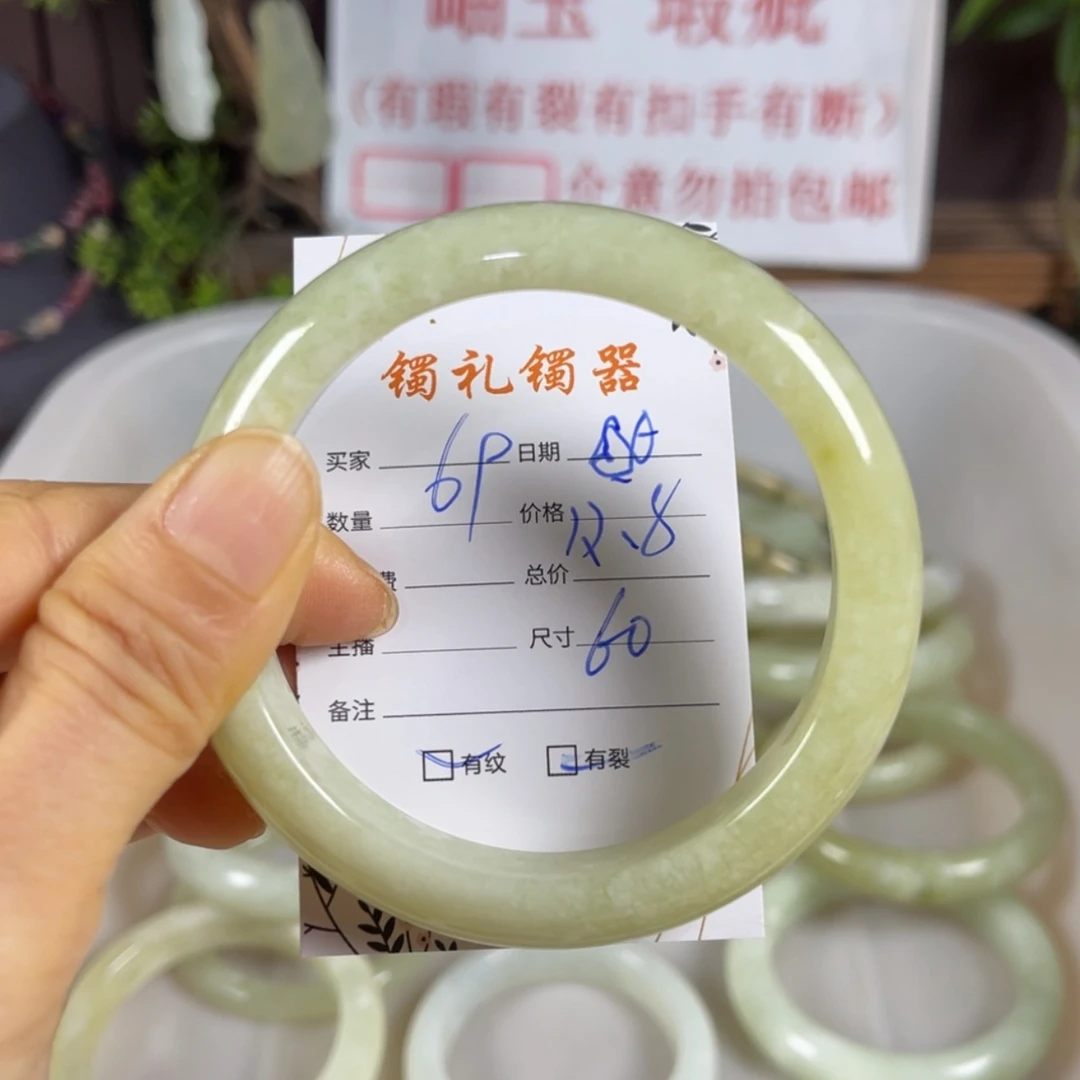 岫玉 瑕疵
（有瑕有裂有扣手有断）
介意勿胎包邮
镯礼镯器
买家 6P 日期
数量 价格 12.8
费 总价
主播 尺寸 60
备注
有纹 有裂